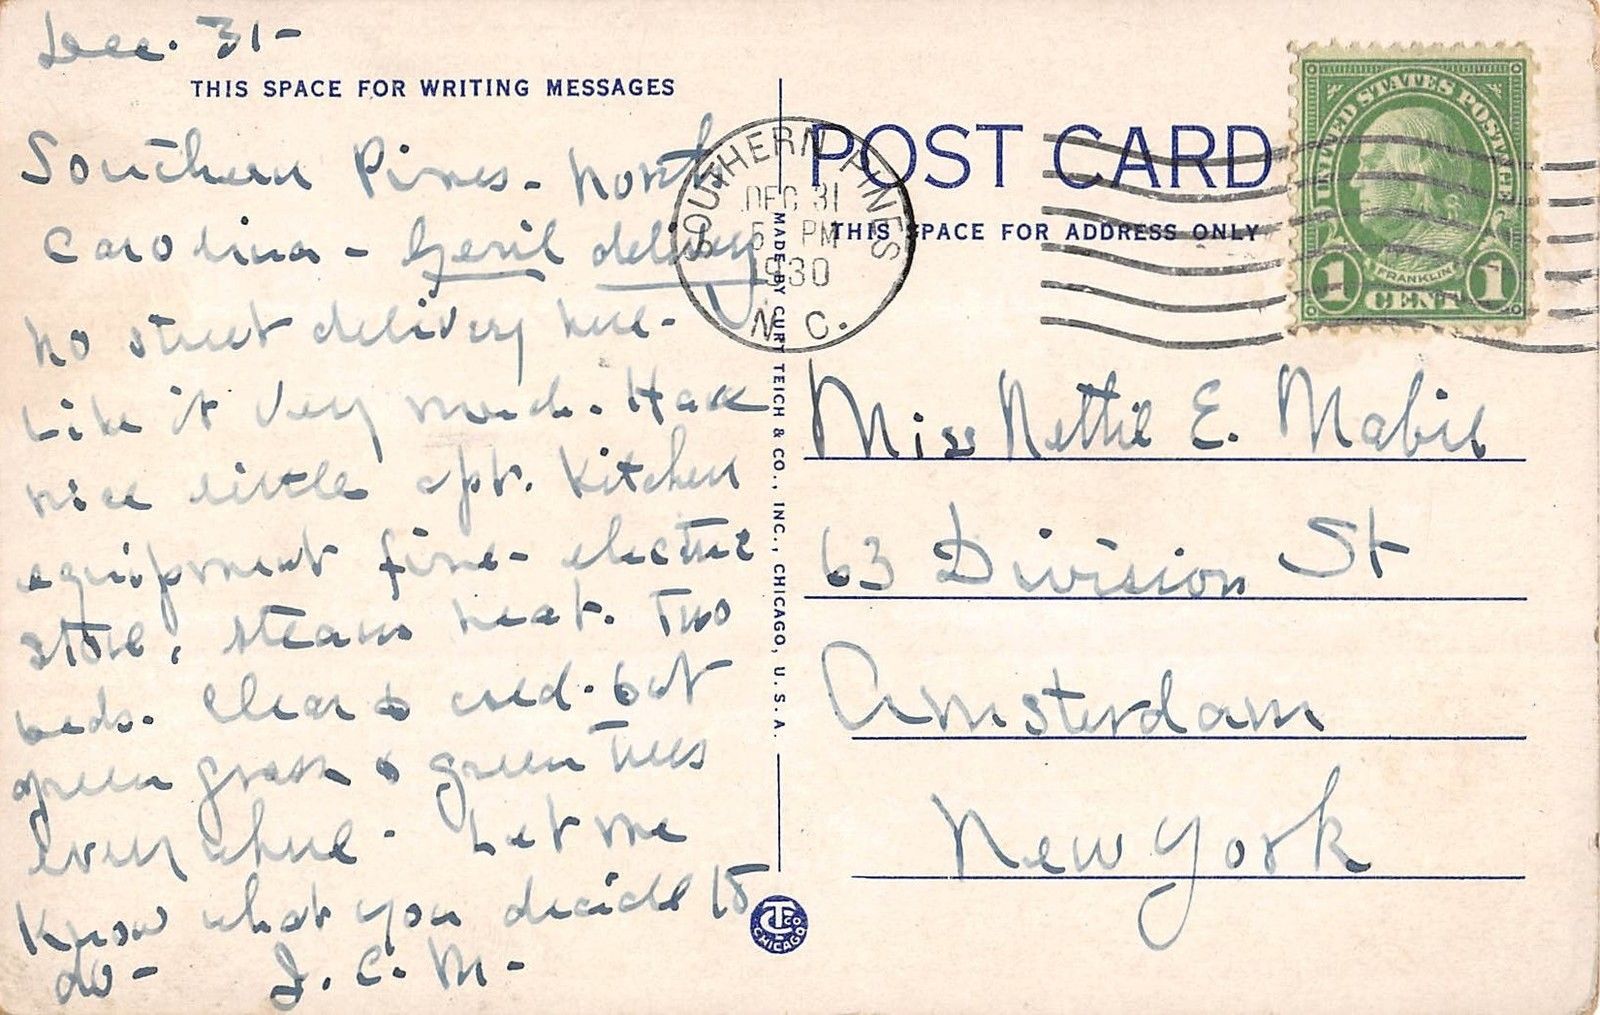 Dec. 31-
THIS SPACE FOR WRITING MESSAGES
Southern Pines - North
Carolina - Genl delivery
No street delivery here -
Like it very much. Have
nice little apt. Kitchen
equipment fine - electric
stove, steam heat. Two
beds. Clear & cold - but
green grass & green trees
everywhere - Let me
know what you decide to
do - J. C. M. -
SOUTHERN PINES
DEC 31
5 PM
1930
N. C.
MADE BY CURT TEICH & CO., INC., CHICAGO, U. S. A.
CT CO
CHICAGO
POST CARD
THIS SPACE FOR ADDRESS ONLY
UNITED STATES POSTAGE
FRANKLIN
1 CENT 1
Miss Nettie E. Mabie
63 Division St
Amsterdam
New York